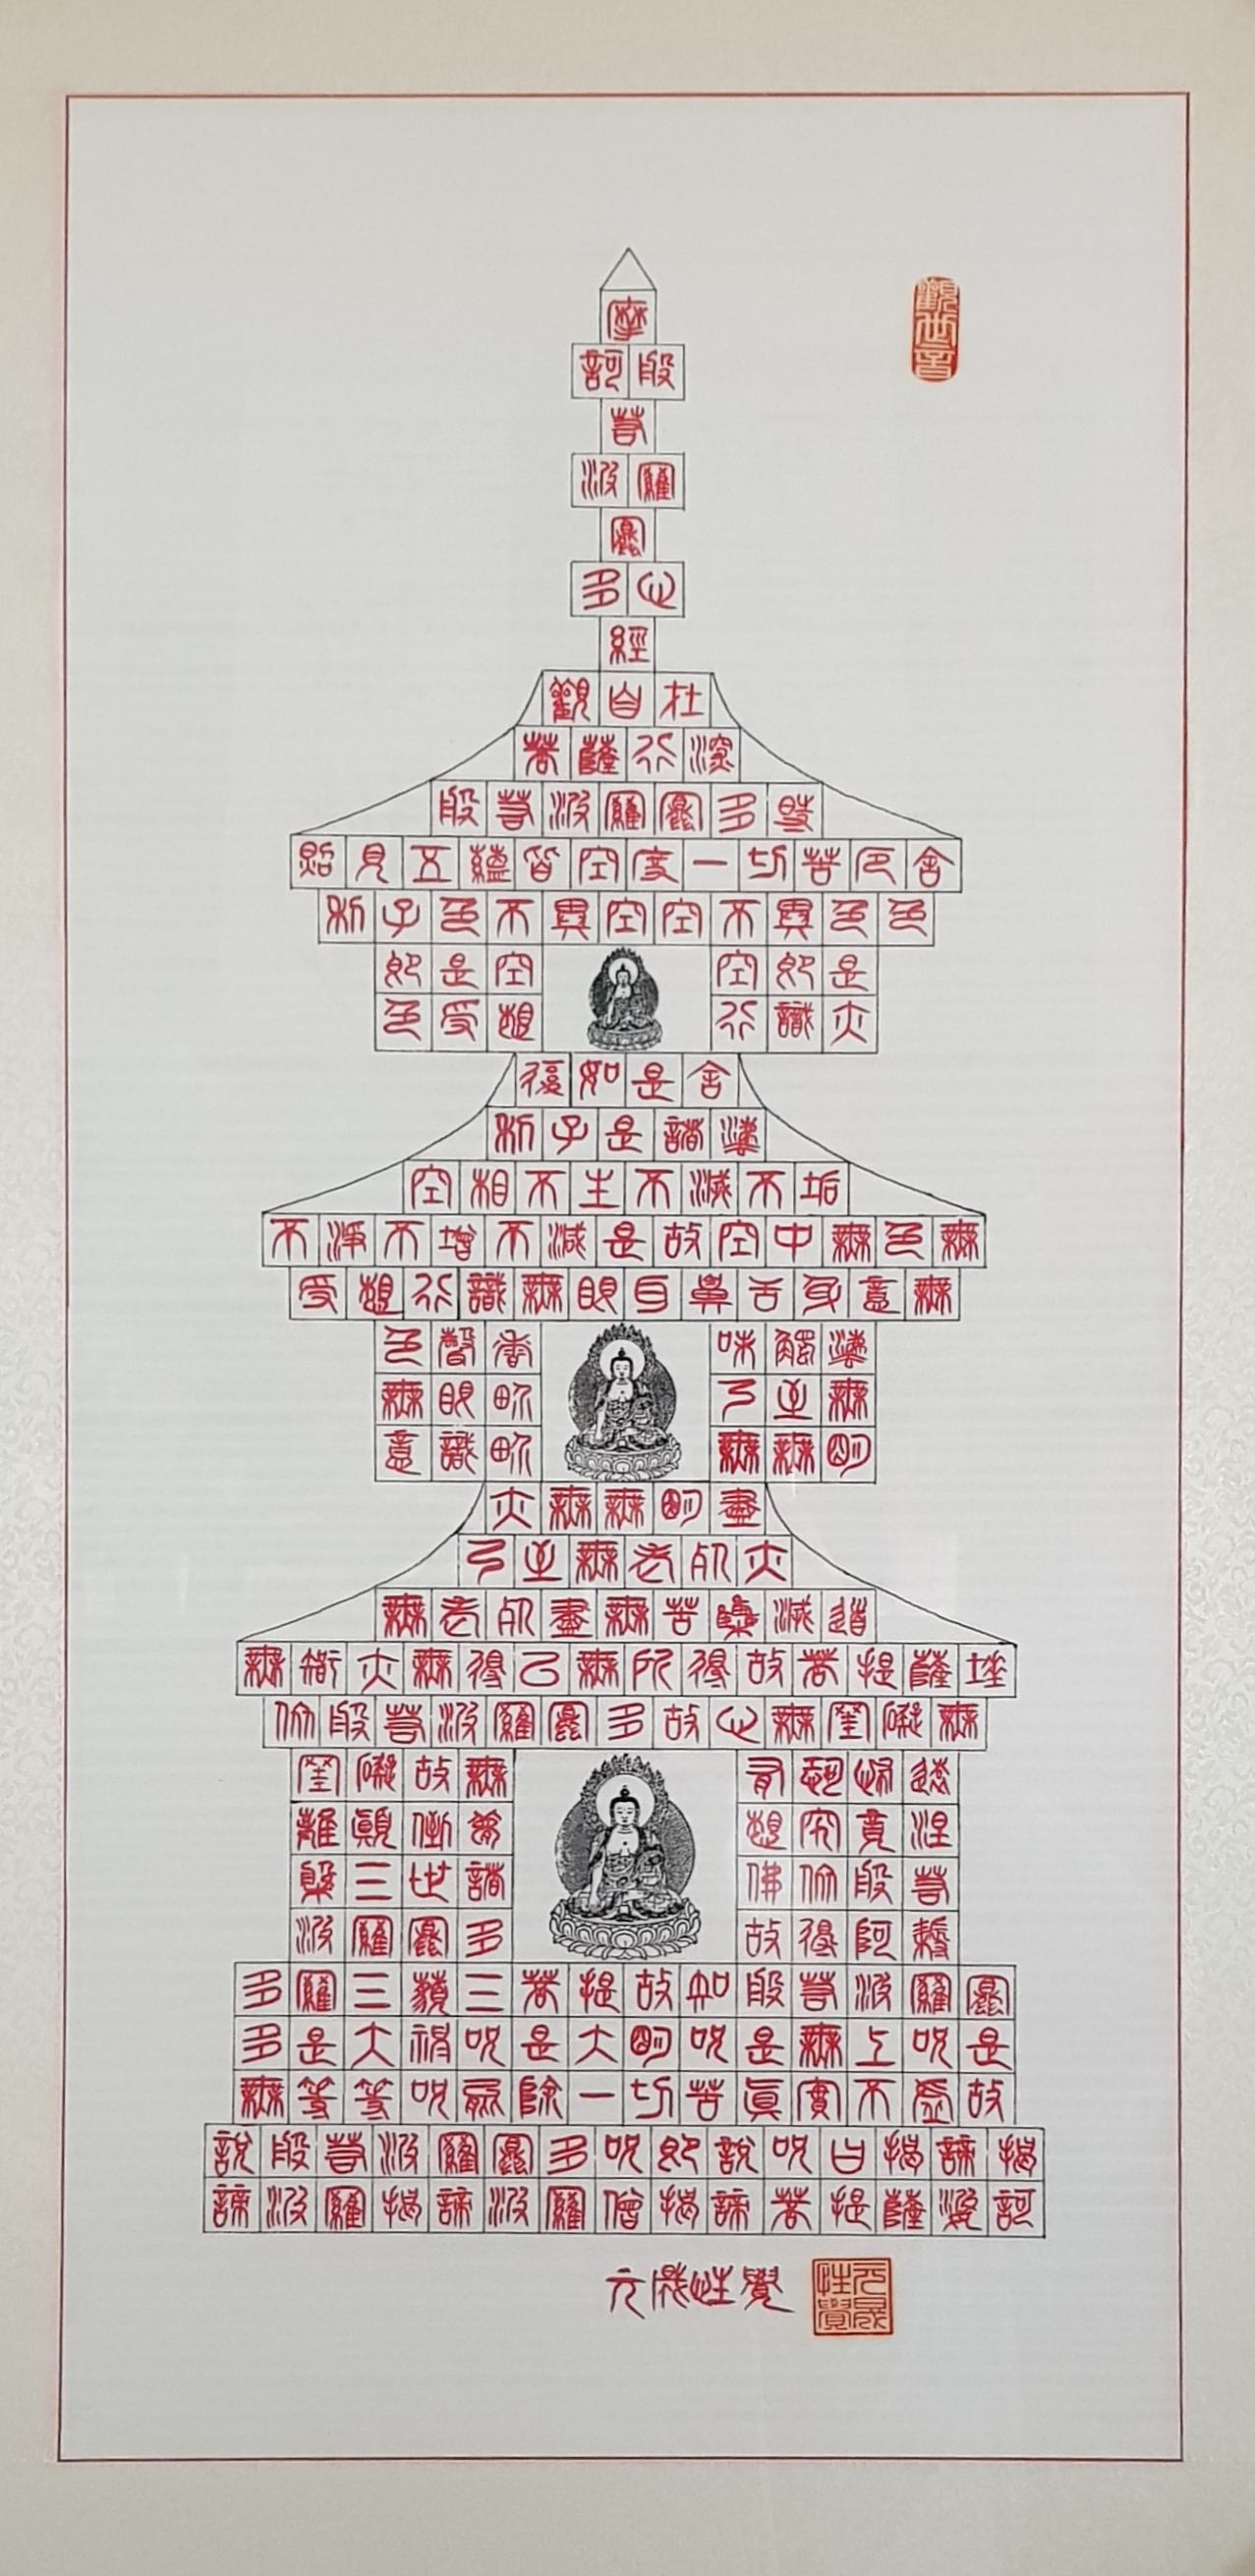 觀世音
摩
訶般
若
波羅
蜜
多心
經
觀自在
菩薩行深
般若波羅蜜多時
照見五蘊皆空度一切苦厄舍
利子色不異空空不異色色
即是空空即是
色受想行識亦
復如是舍
利子是諸法
空相不生不滅不垢
不淨不增不減是故空中無色無
受想行識無眼耳鼻舌身意無
色聲香味觸法
無眼界乃至無
意識界無無明
亦無無明盡
乃至無老死亦
無老死盡無苦集滅道
無智亦無得以無所得故菩提薩埵
依般若波羅蜜多故心無罣礙無
罣礙故無有恐怖遠
離顚倒夢想究竟涅
槃三世諸佛依般若
波羅蜜多故得阿耨
多羅三藐三菩提故知般若波羅蜜
多是大神呪是大明呪是無上呪是
無等等呪能除一切苦眞實不虛故
說般若波羅蜜多呪即說呪曰揭諦揭
諦波羅揭諦波羅僧揭諦菩提薩婆訶
元晟性覺
元晟性覺